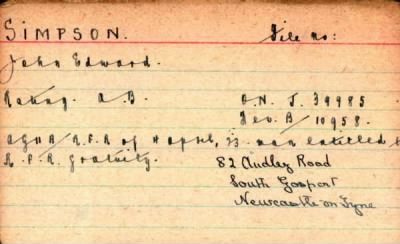 SIMPSON. File no:
John Edward.
Rating. A.B. O.N. J. 39985.
Dev. B/ 10958.
R.F.R of 4 April, 33. man entitled t
R.F.R gratuity.
82 Audley Road
South Gosport
Newcastle on Tyne